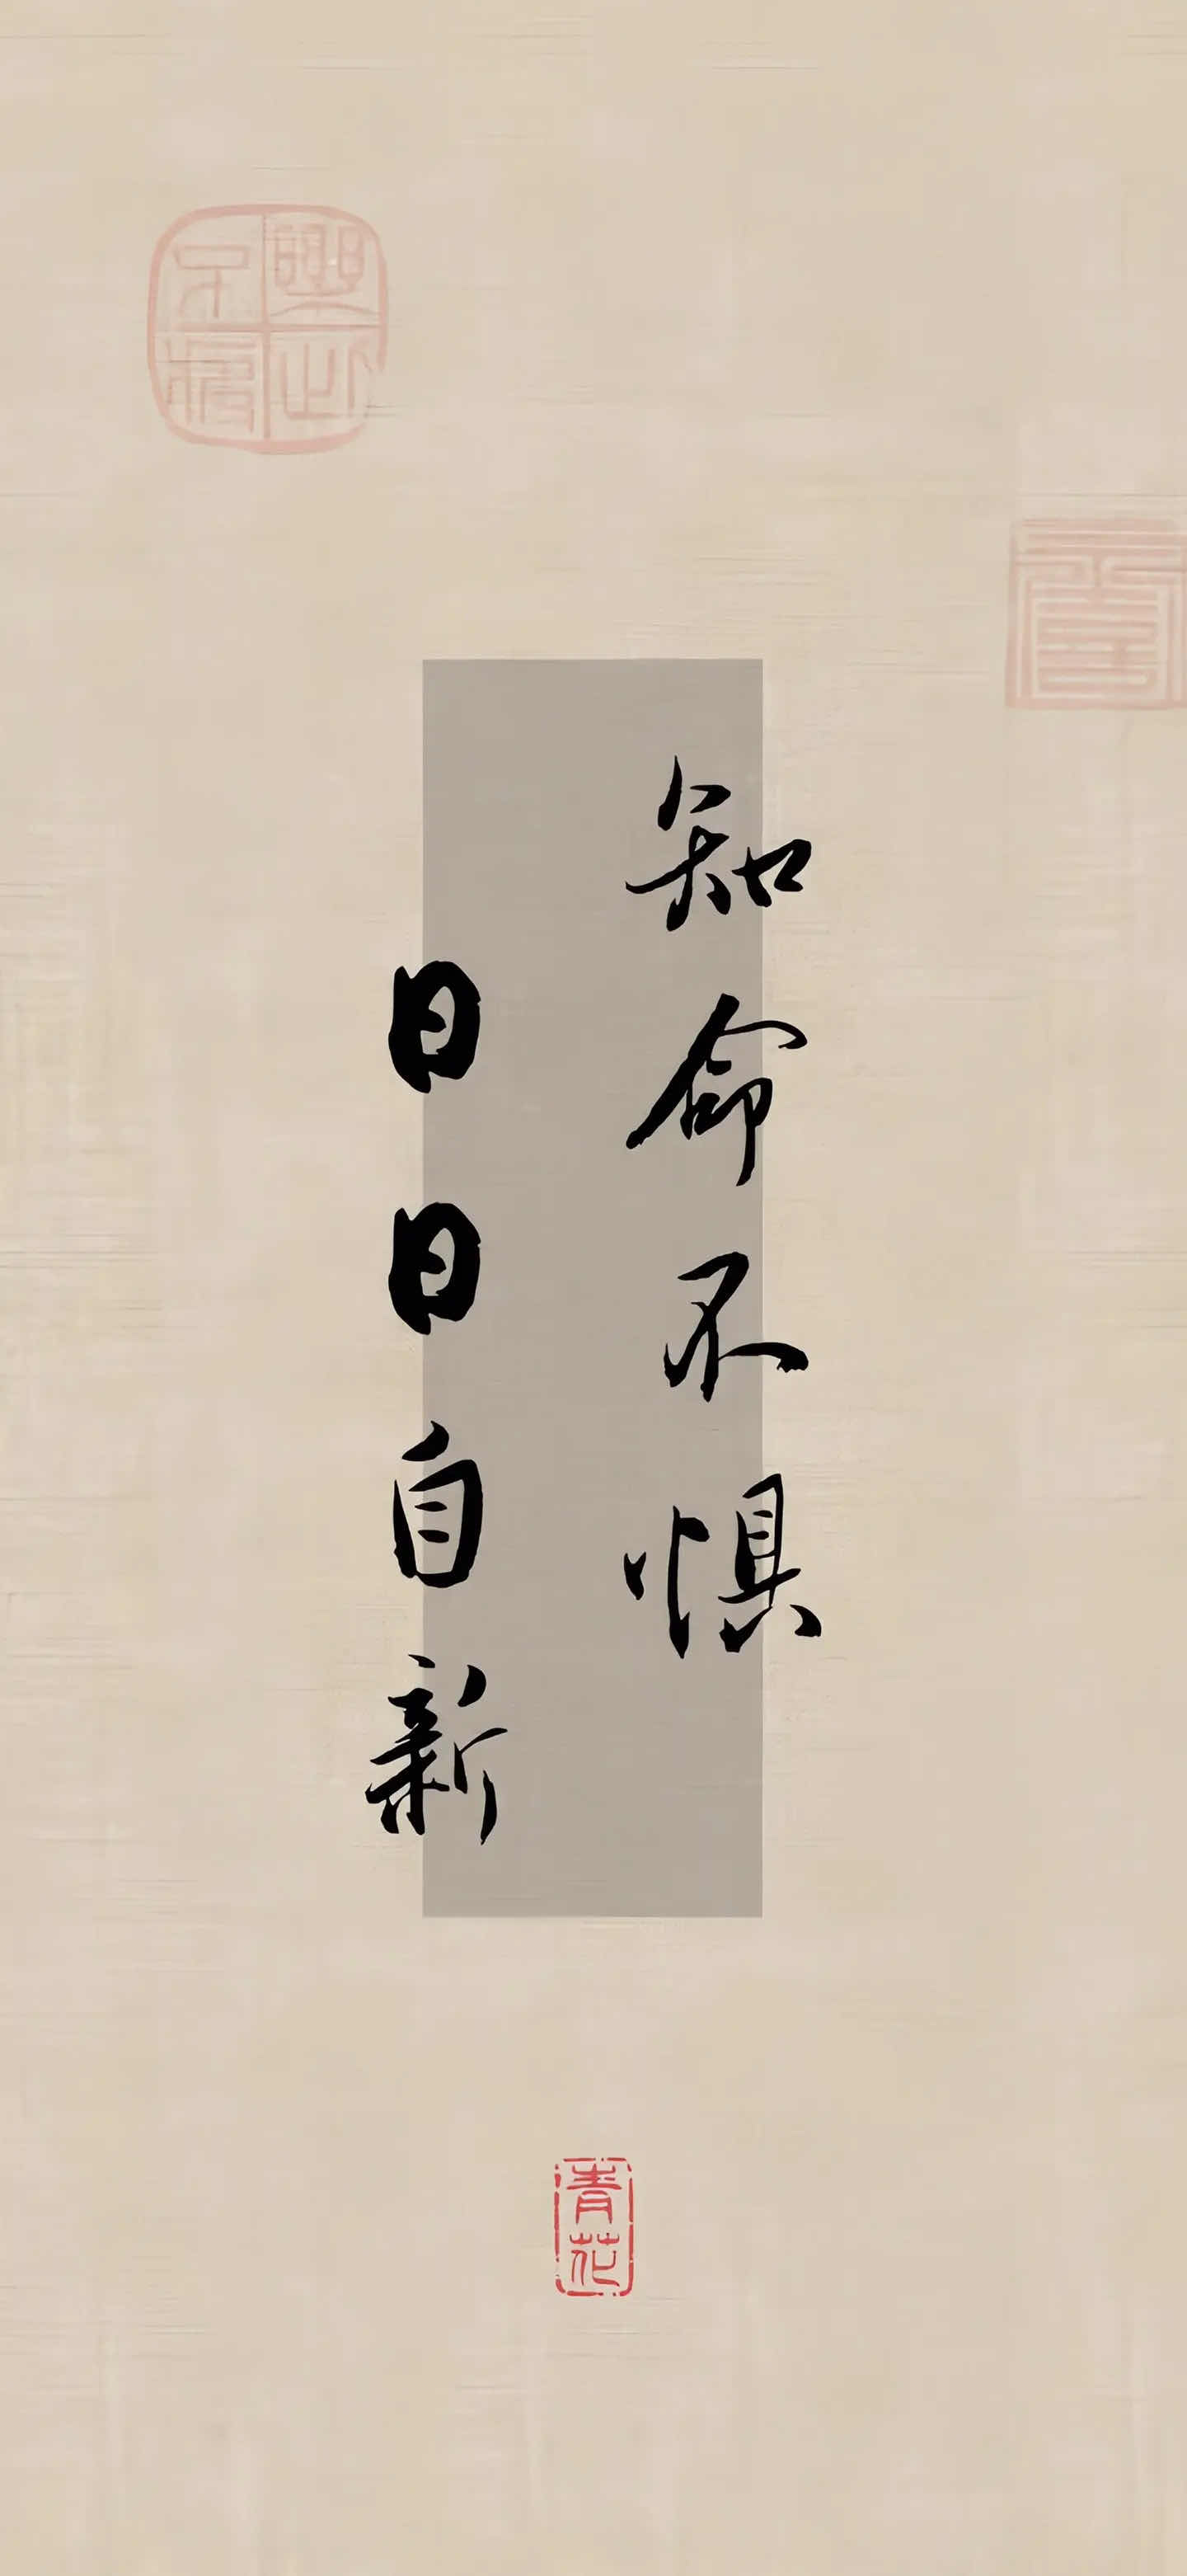 知命不惧
日日自新
青花